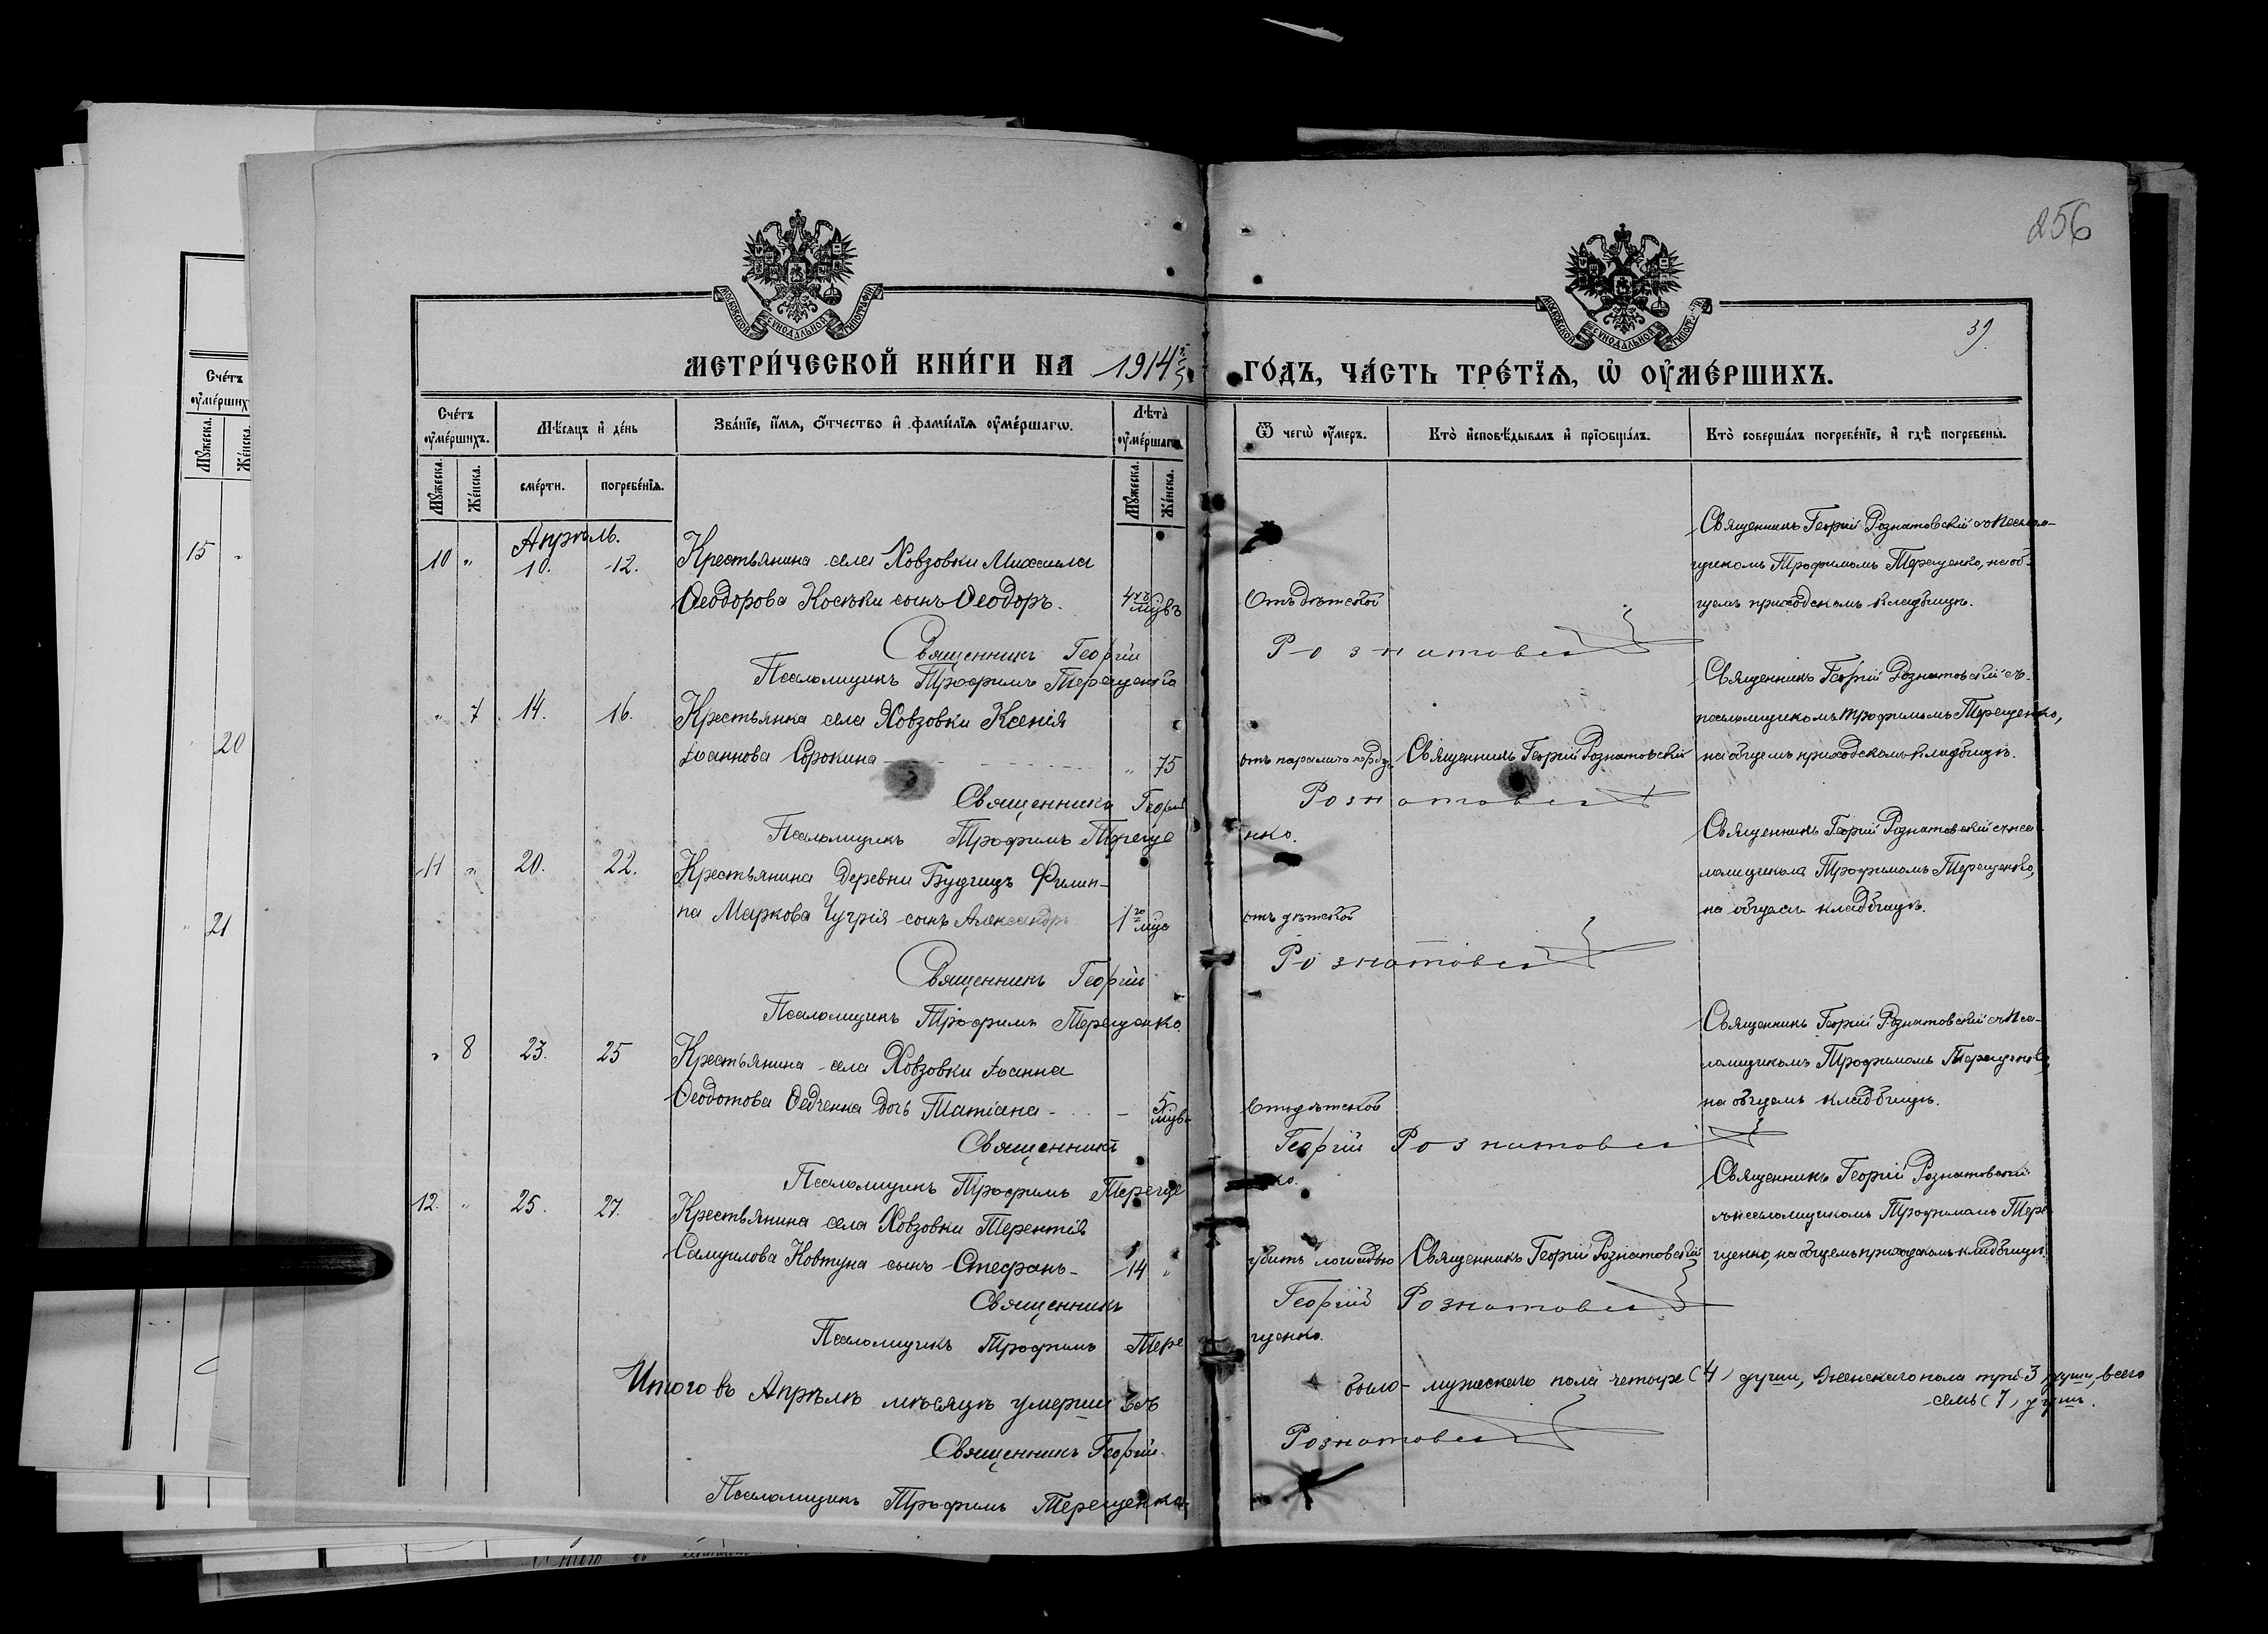 256
39
МОСКОВСКОЙ СѴНОДАЛЬНОЙ ТИПОГРАФІИ
МОСКОВСКОЙ СѴНОДАЛЬНОЙ
МЕТРИ́ЧЕСКОЙ КНИ́ГИ НА 1914
ГО́ДЪ, ЧА́СТЬ ТРЕ́ТЇѦ, Ѡ҆ ОУ҆МЕ́РШИХЪ.
Сче́тъ оу҆ме́ршихъ.
Мѣ́сяцъ и҆ де́нь
Зва́нїе, и҆́мѧ, ѻ҆́тчество и҆ фами́лїѧ оу҆ме́ршагѡ.
Лѣ́та оу҆ме́ршагѡ
Ѿ чегѡ̀ оу҆́меръ.
Кто̀ и҆сповѣ́дывалъ и҆ прїѡбща́лъ.
Кто̀ соверша́лъ погребе́нїе, и҆ гдѣ̀ погребены̀.
Мꙋ́жеска.
Же́нска.
сме́рти.
погребе́нїѧ.
Мꙋ́жеска.
Же́нска.
Сче́тъ
оу҆ме́ршихъ
Мꙋ́жеска.
Же́нска.
15 "
20
" 21
Апрѣль.
10 " 10. 12. Крестьянина села Ховзовки Михаила
Ѳеодорова Косѣки сынъ Ѳеодоръ. 4 Отъ дѣтской
Священникъ Георгій Рознатовскій съ псало-
щикомъ Трофимомъ Терещенко, на об-
щемъ приходскомъ кладбищѣ.
Священникъ Георгій Рознатовскій
Псаломщикъ Трофимъ Терещенко
" 7 14. 16. Крестьянка села Ховзовки Ксенія
Іоаннова Сорокина " 75 Священникъ Георгій Рознатовскій
Священникъ Георгій Рознатовскій съ
псаломщикомъ Трофимомъ Терещенко,
на общемъ приходскомъ кладбищѣ.
Священникъ Георгій Рознатовскій
Псаломщикъ Трофимъ Терещенко.
11 " 20. 22. Крестьянина деревни Будищъ Филип-
па Маркова Чугрія сынъ Александръ 1 отъ дѣтской
Священникъ Георгій Рознатовскій съ пса-
ломщикомъ Трофимомъ Терещенко,
на общемъ кладбищѣ.
Священникъ Георгій Рознатовскій
Псаломщикъ Трофимъ Терещенко.
" 8 23. 25 Крестьянина села Ховзовки Іоанна
Ѳеодотова дочь Татіана - 5 Отъ дѣтской
Священникъ Георгій Рознатовскій съ пса-
ломщикомъ Трофимомъ Терещенко,
на общемъ кладбищѣ.
Священникъ Георгій Рознатовскій
Псаломщикъ Трофимъ Тереще
12. " 25. 27. Крестьянина села Ховзовки Терентія
Самуилова Ковтуна сынъ Стефанъ - 14 " убитъ лошадью Священникъ Георгій Рознатовскій
Священникъ Георгій Рознатовскій
съ псаломщикомъ Трофимомъ Тере-
щенко, на общемъ приходскомъ кладбищѣ.
Священникъ Георгій Рознатовскій
Псаломщикъ Трофимъ Терещенко.
Итого въ Апрѣлѣ мѣсяцѣ умершихъ было - мужескаго пола четыре (4) души, женскаго пола три 3 души, всего
семь (7) душъ.
Священникъ Георгій Рознатовскій
Псаломщикъ Трофимъ Терещенко